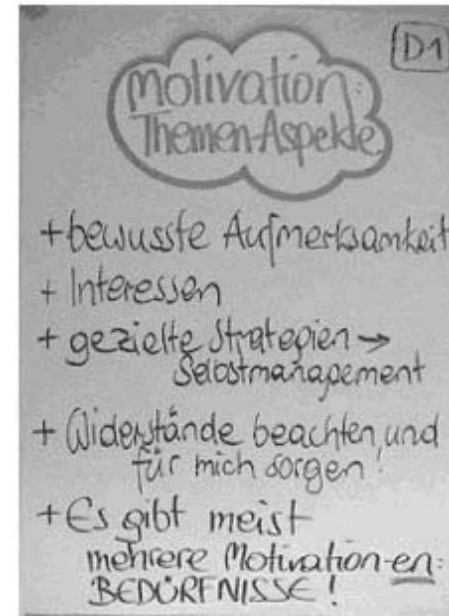 D1
Motivation:
Themen-Aspekte
+ bewusste Aufmerksamkeit
+ Interessen
+ gezielte Strategien →
Selbstmanagement
+ Widerstände beachten und
für mich sorgen!
+ Es gibt meist
mehrere Motivation-en:
BEDÜRFNISSE!